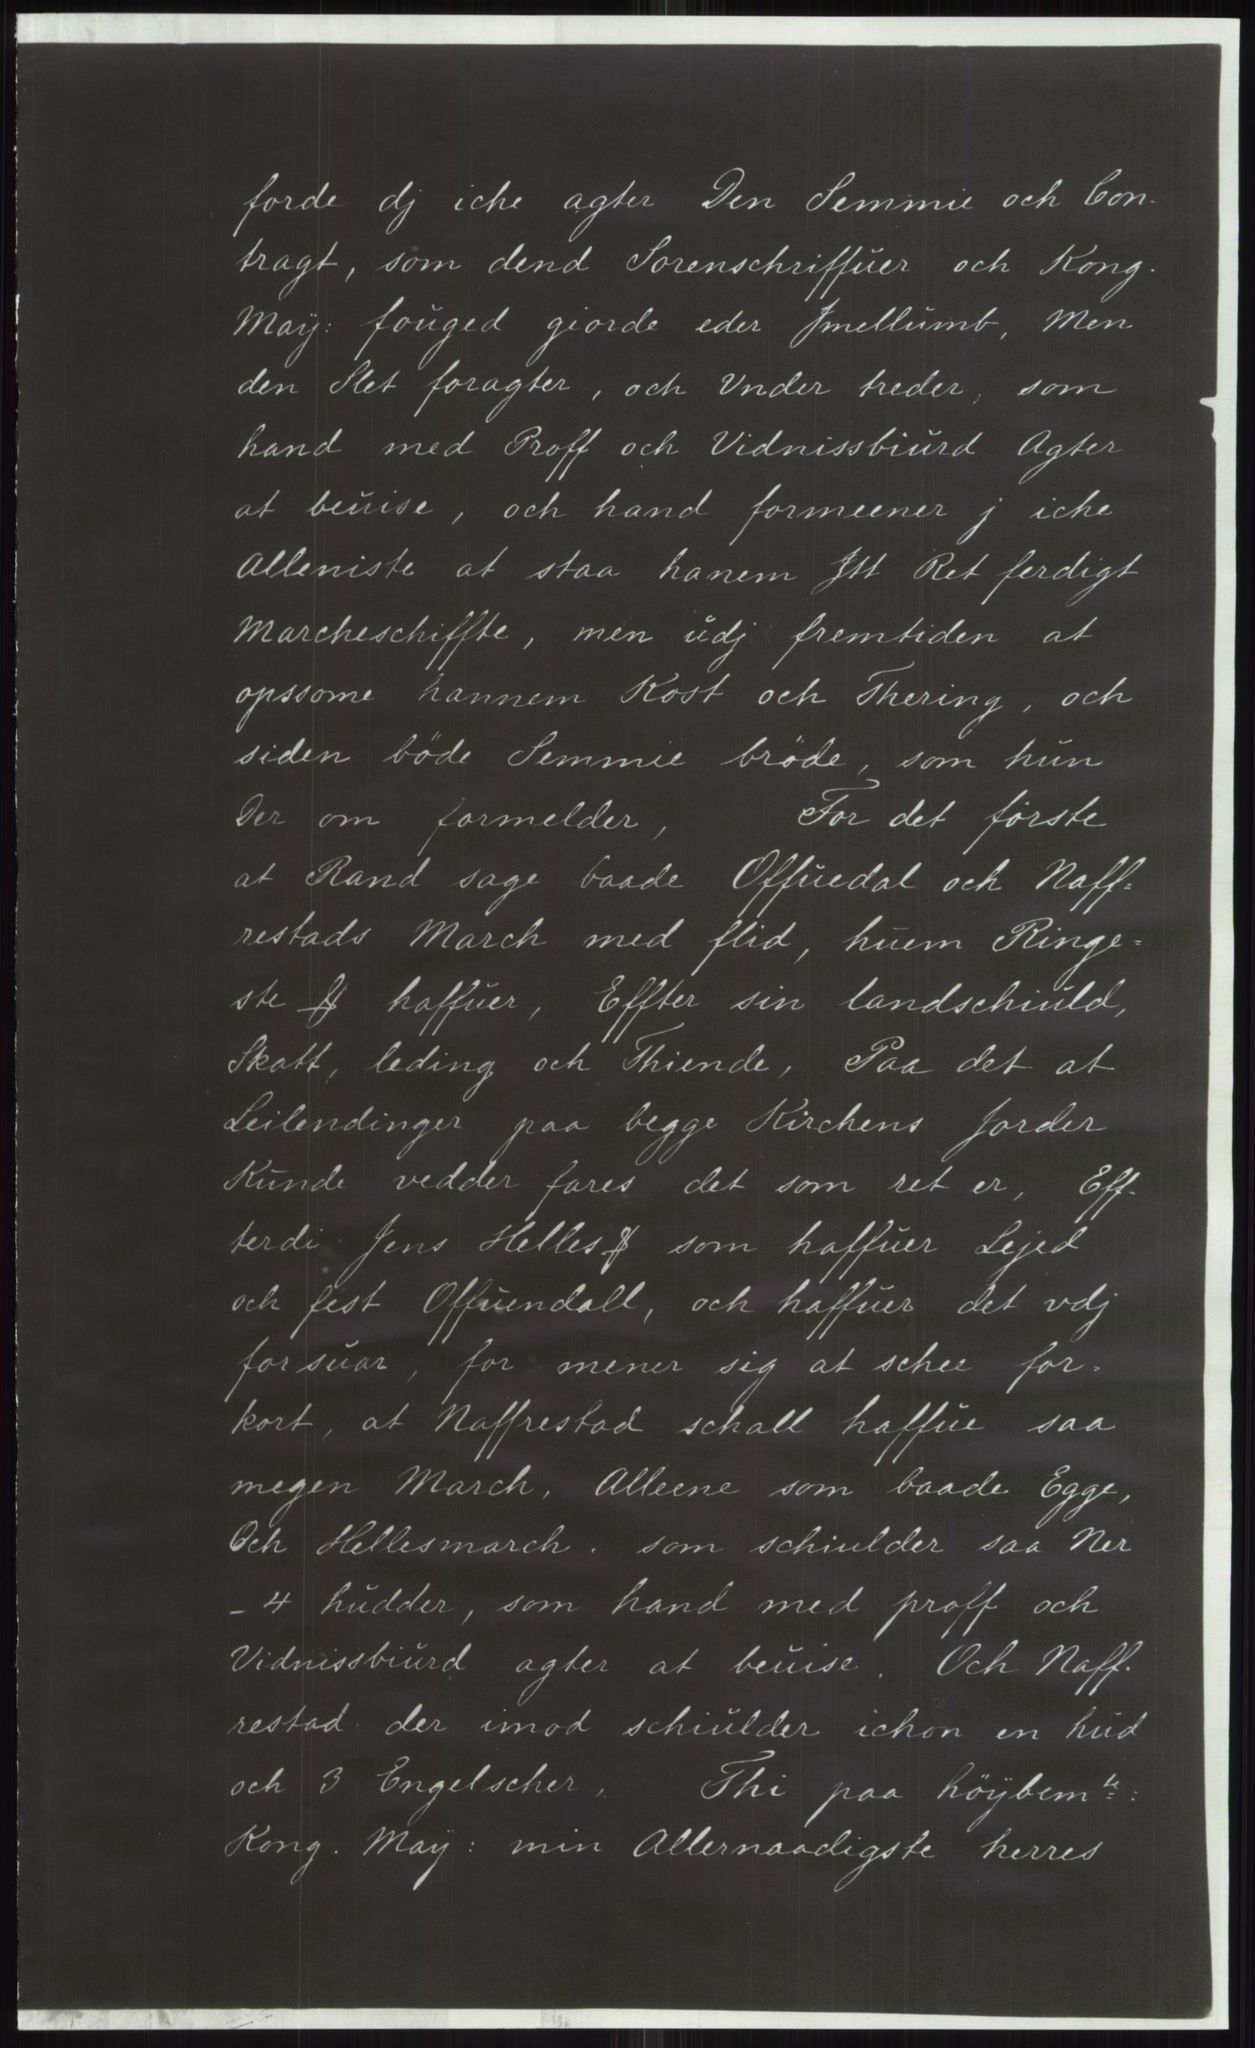 forde dj iche agter Den Semmie och Con-
tragt, som dend Sorenschriffŭer och Kong.
Maÿ: foŭged giorde eder Jmellŭmb, Men
den Slet foragter, och Vnder treder, som
hand med Proff och Vidnissbiŭrd Agter
at beŭise, och hand formeener j iche
Alleniste at staa hanem Jtt Ret ferdigt
Marcheschiffte, men ŭdj fremtiden at
opssome hannem Kost och Thering, och
siden böde Semmie bröde, som hŭn
Der om formelder, For det förste
at Rand sage baade Offŭedal och Naff-
restads March med flid, hŭem Ringe-
ste haffŭer, Effter sin landschiŭld,
Skatt, leding och Thiende, Paa det at
Leilendinger paa begge Kirchens Jorder
Kŭnde vedder fares det som ret er, Eff-
terdi Jens Helles som haffŭer Lejed
och fest Offŭendall, och haffŭer det vdj
forsŭar, for mener sig at schee for-
kort, at Naffrestad schall haffŭe saa
megen March, Alleene som baade Egge,
Och Hellesmarch. som schiulder saa Ner
- 4 hŭdder, som hand med proff och
Vidnissbiŭrd agter at beŭise. Och Naff-
restad der imod schiŭlder ichon en hŭd
och 3 Engelscher, Thi paa höÿbemte:
Kong. Maÿ: min Allernaadigste herres